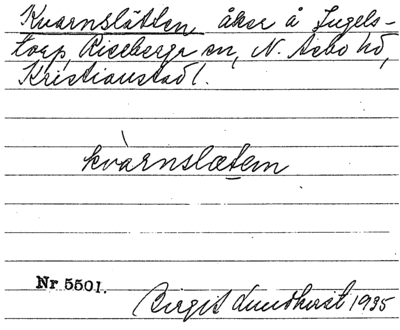 Kvarnslätten åker å Ingels-
torp, Riseberga sn, N. Åsbo hd,
Kristianstad l.
kvàrnslætem
Nr 5501.
Birgit Lundkvist 1935